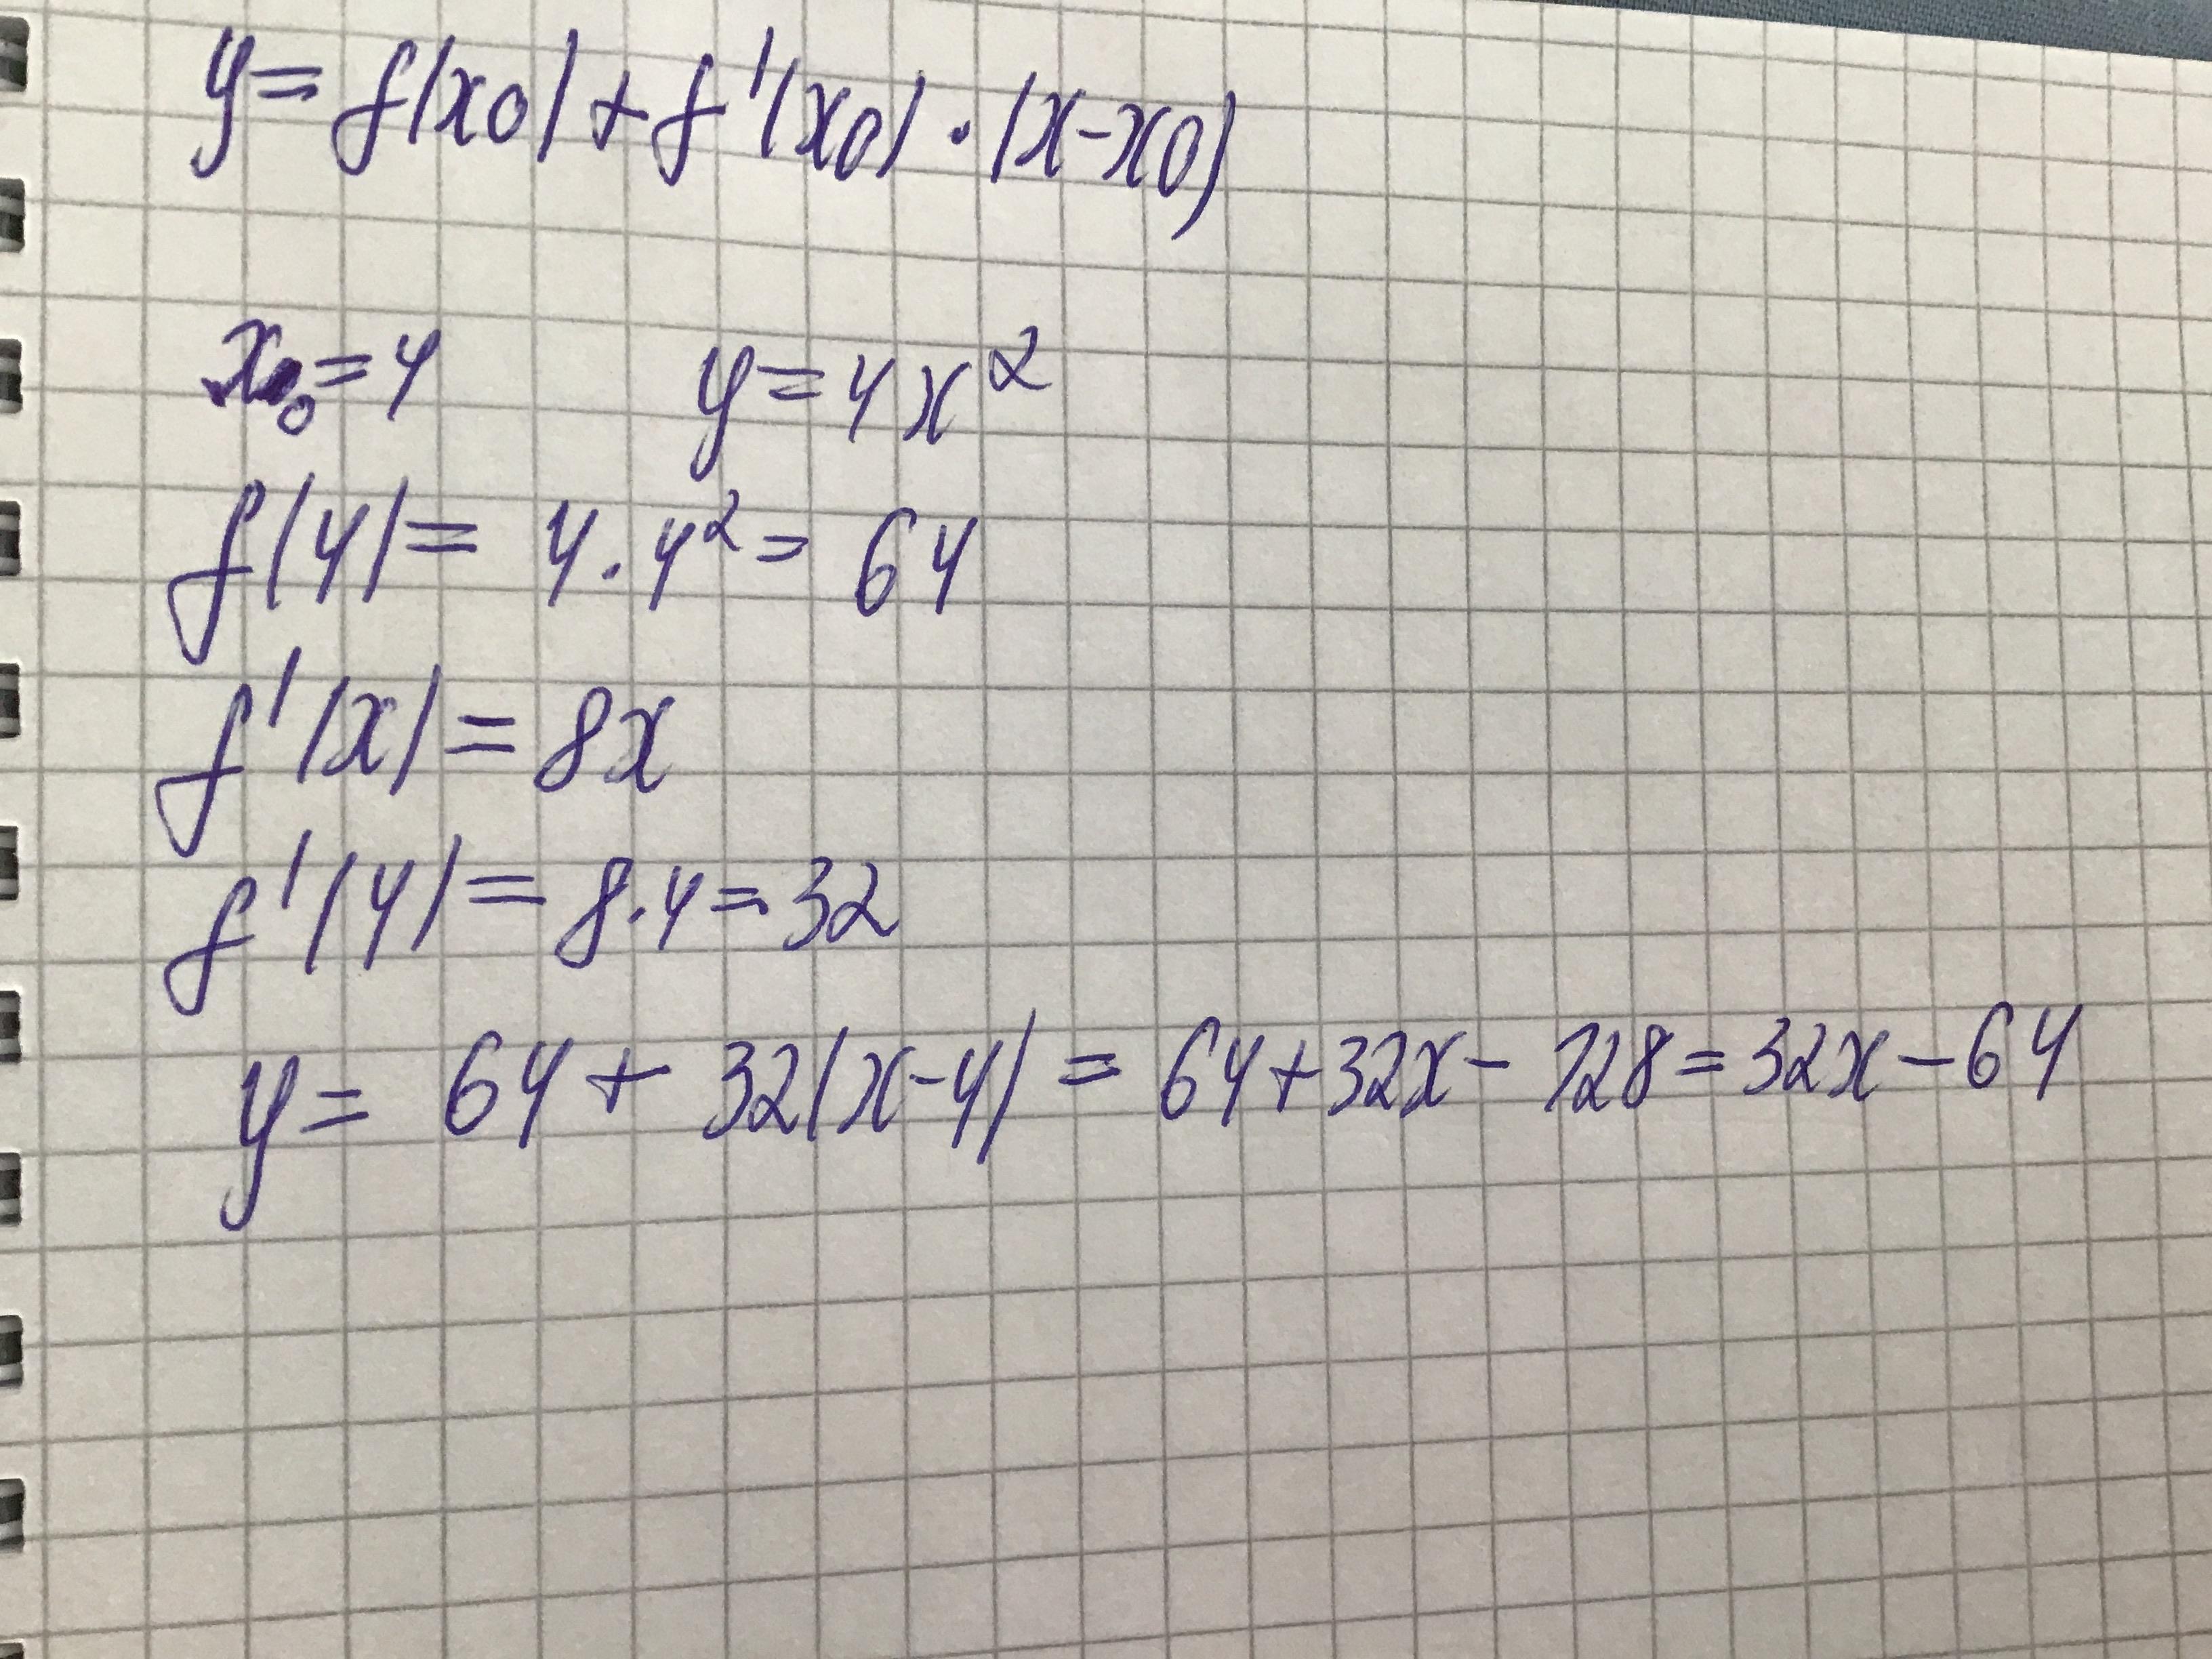 y = f(x0) + f'(x0) · (x-x0)
x₀ = 4 y = 4x²
f(4) = 4 · 4² = 64
f'(x) = 8x
f'(4) = 8 · 4 = 32
y = 64 + 32(x-4) = 64 + 32x - 128 = 32x - 64